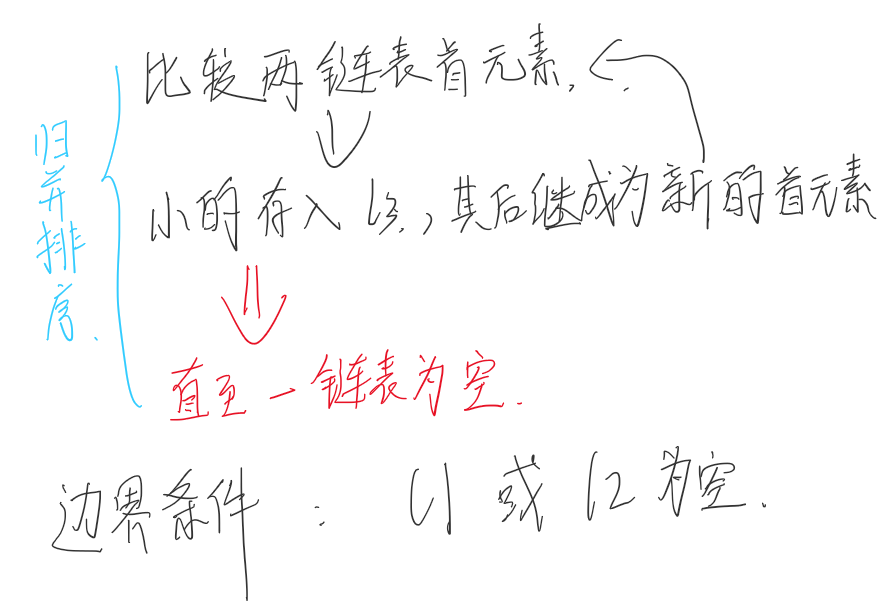 归并排序.
比较两链表首元素.
小的存入l3.,其后继成为新的首元素
直至一链表为空.
边界条件: l1或l2为空.